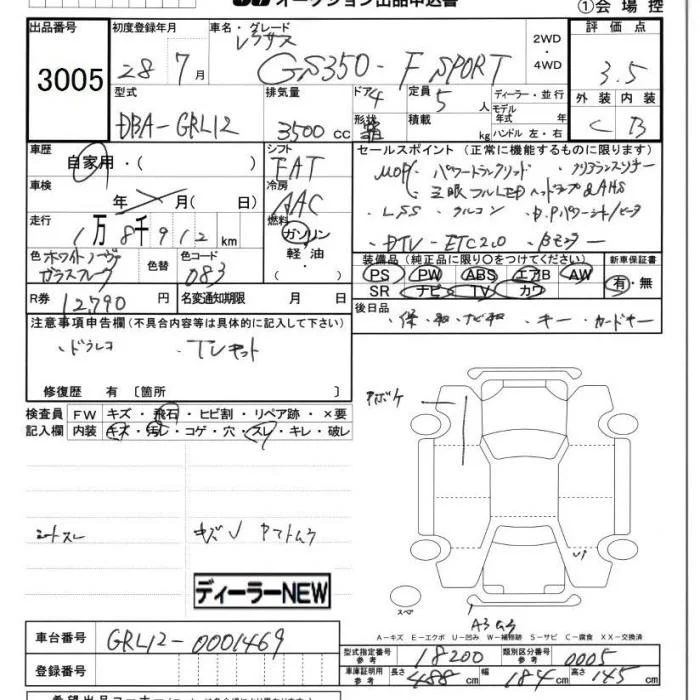 オークション出品申込書
①会場控
出品番号 初度登録年月 車名・グレード 2WD・4WD 評価点
3005 28年7月 レクサス GS350-F SPORT 3.5
型式 排気量 ドア 定員 ディーラー・並行
DBA-GRL12 3500cc 4 5人 モデル年式 年式
形状 積載 kg ハンドル 左・右
外装 内装
C B
車歴 自家用・( ) シフト FAT
セールスポイント(正常に機能するものに限ります)
MOP パワートランクリッド・クリアランスソナー
・三眼フルLEDヘッドランプ&AHS
・LSS・クルコン
・DTV・ETC2.0
車検 年 月( 日) 冷房 AAC
走行 1万8千912km 燃料 ガソリン・軽油・
色 ホワイトノーヴァガラスフレーク 色替 色コード 083
装備品(純正品に限り○をつけてください) 新車保証書
PS PW ABS エアB AW 有・無
SR ナビ TV カワ
R券 12,790円 名変通知期限 月 日
後日品 ・保・取・ナビ取・キー・カードキー
注意事項申告欄(不具合内容等は具体的に記入して下さい)
・ドラレコ ・TVキット
修復歴 有〔箇所 〕
検査員記入欄 FW キズ・飛石・ヒビ割・リペア跡・×要
内装 キズ・汚レ・コゲ・穴・スレ・キレ・破レ
シートスレ
ディーラーNEW
スペア
A-キズ E-エクボ U-凹み W-補修跡 S-サビ C-腐食 XX-交換済
車台番号 GRL12-0001469
型式指定番号 参考 18200 類別区分番号 参考 0005
登録番号
車庫証明用 参考 長さ 488cm 幅 184cm 高さ 145cm